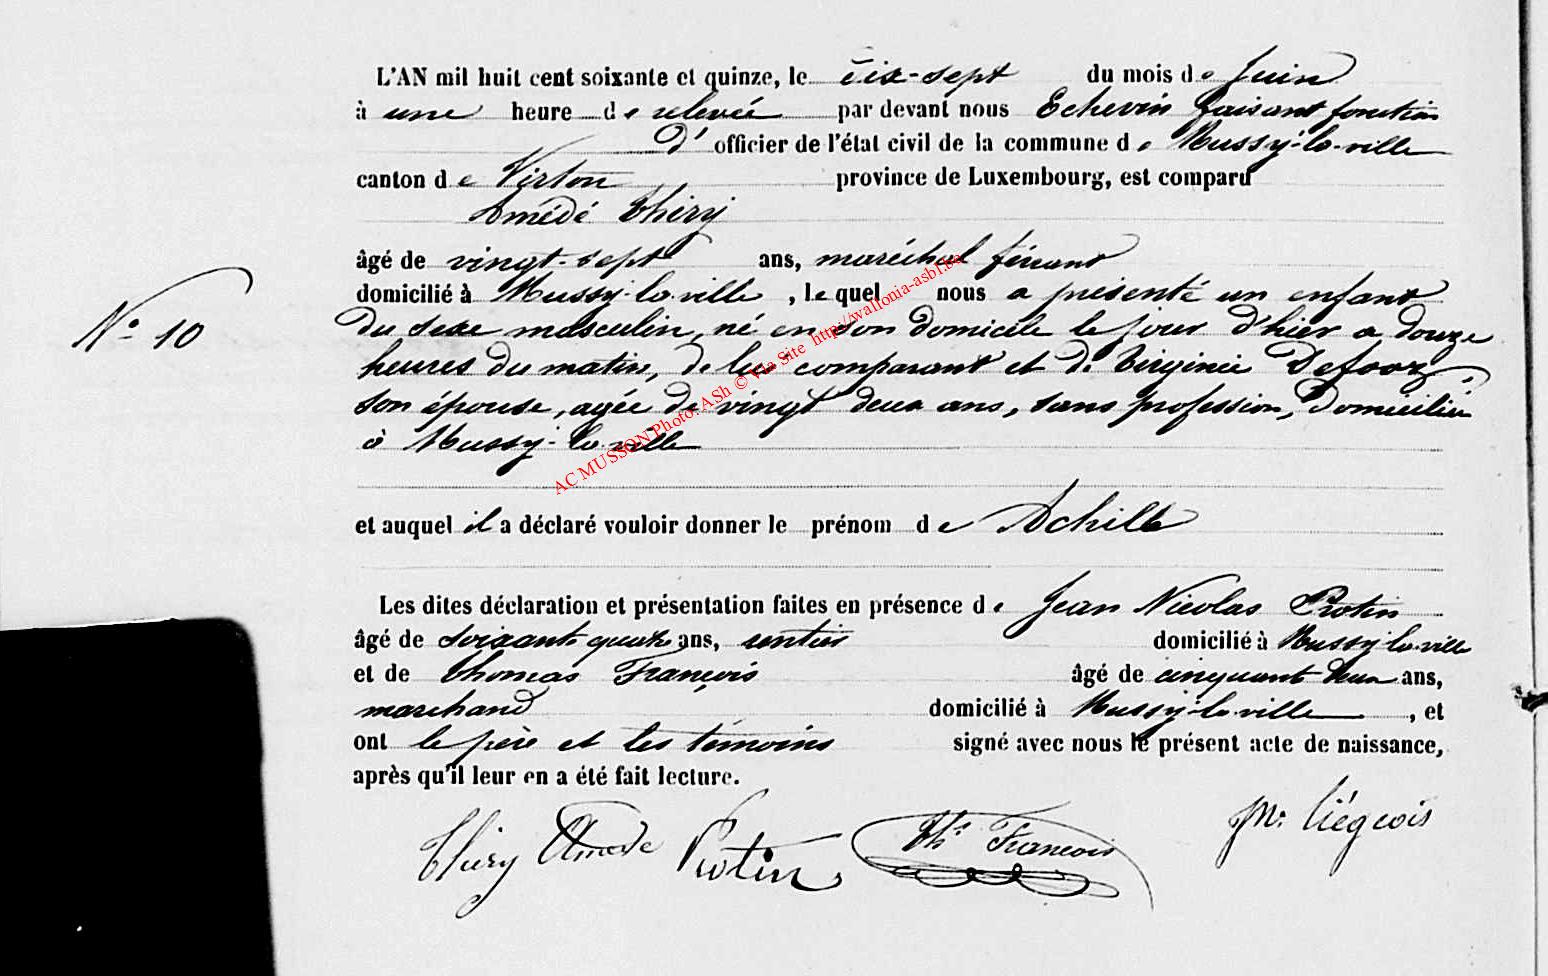 L'AN mil huit cent soixante et quinze, le dix-sept du mois de Juin
à une heure de relevée par devant nous Echevin faisant fonction
d' officier de l'état civil de la commune de Mussy-la-ville
canton de Virton province de Luxembourg, est comparu
Amédé Thiry
âgé de vingt-sept ans, maréchal férant
domicilié à Mussy-la-ville , lequel nous a présenté un enfant
du sexe masculin, né en son domicile le jour d'hier a douze
N° 10
heures du matin, de lui comparant et de Virginie Defooz,
son épouse, agée de vingt deux ans, sans profession, domiciliée
à Mussy-la-ville
AC MUSSON Photo: ASh © Via Site http://wallonia-asbl.be
et auquel il a déclaré vouloir donner le prénom de Achille
Les dites déclaration et présentation faites en présence de Jean Nicolas Protin
âgé de soixante quatre ans, rentier domicilié à Mussy-la-ville
et de Thomas François âgé de cinquant deux ans,
marchand domicilié à Mussy-la-ville , et
ont le père et les témoins signé avec nous le présent acte de naissance,
après qu'il leur en a été fait lecture.
Thiry Amédé Protin Ths François Liégeois